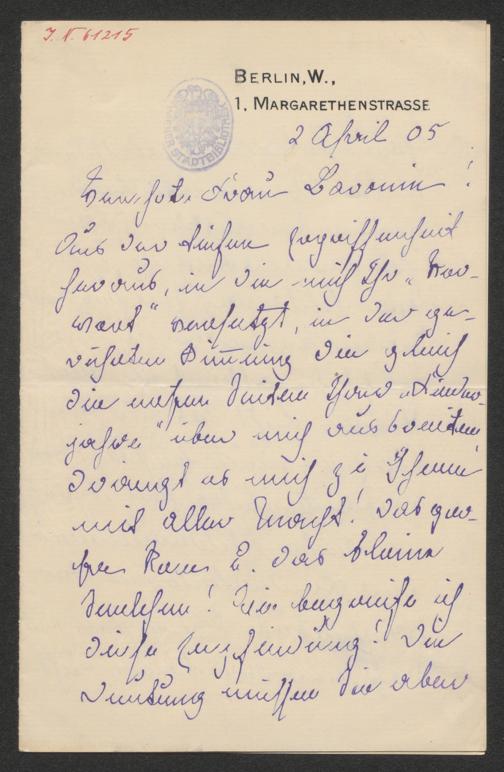 J. N. 61215
BERLIN, W.,
1, MARGARETHENSTRASSE
STADTBIBLIOTHEK
2 April 05
Verehrte Frau Baronin!
Aus der tiefen Ergriffenheit
heraus, in die mich Ihr „Vor-
wort" versetzt, in der ge-
rührten Stimmung die gleich
die ersten Seiten Ihrer „Kinder-
jahre" über mich ausbreiten
drängt es mich zu Ihnen
mit aller Macht! Das gro-
ße
das kleine
Seelchen! Wie begreife ich
diese Empfindung! Die
Deutung müssen Sie aber